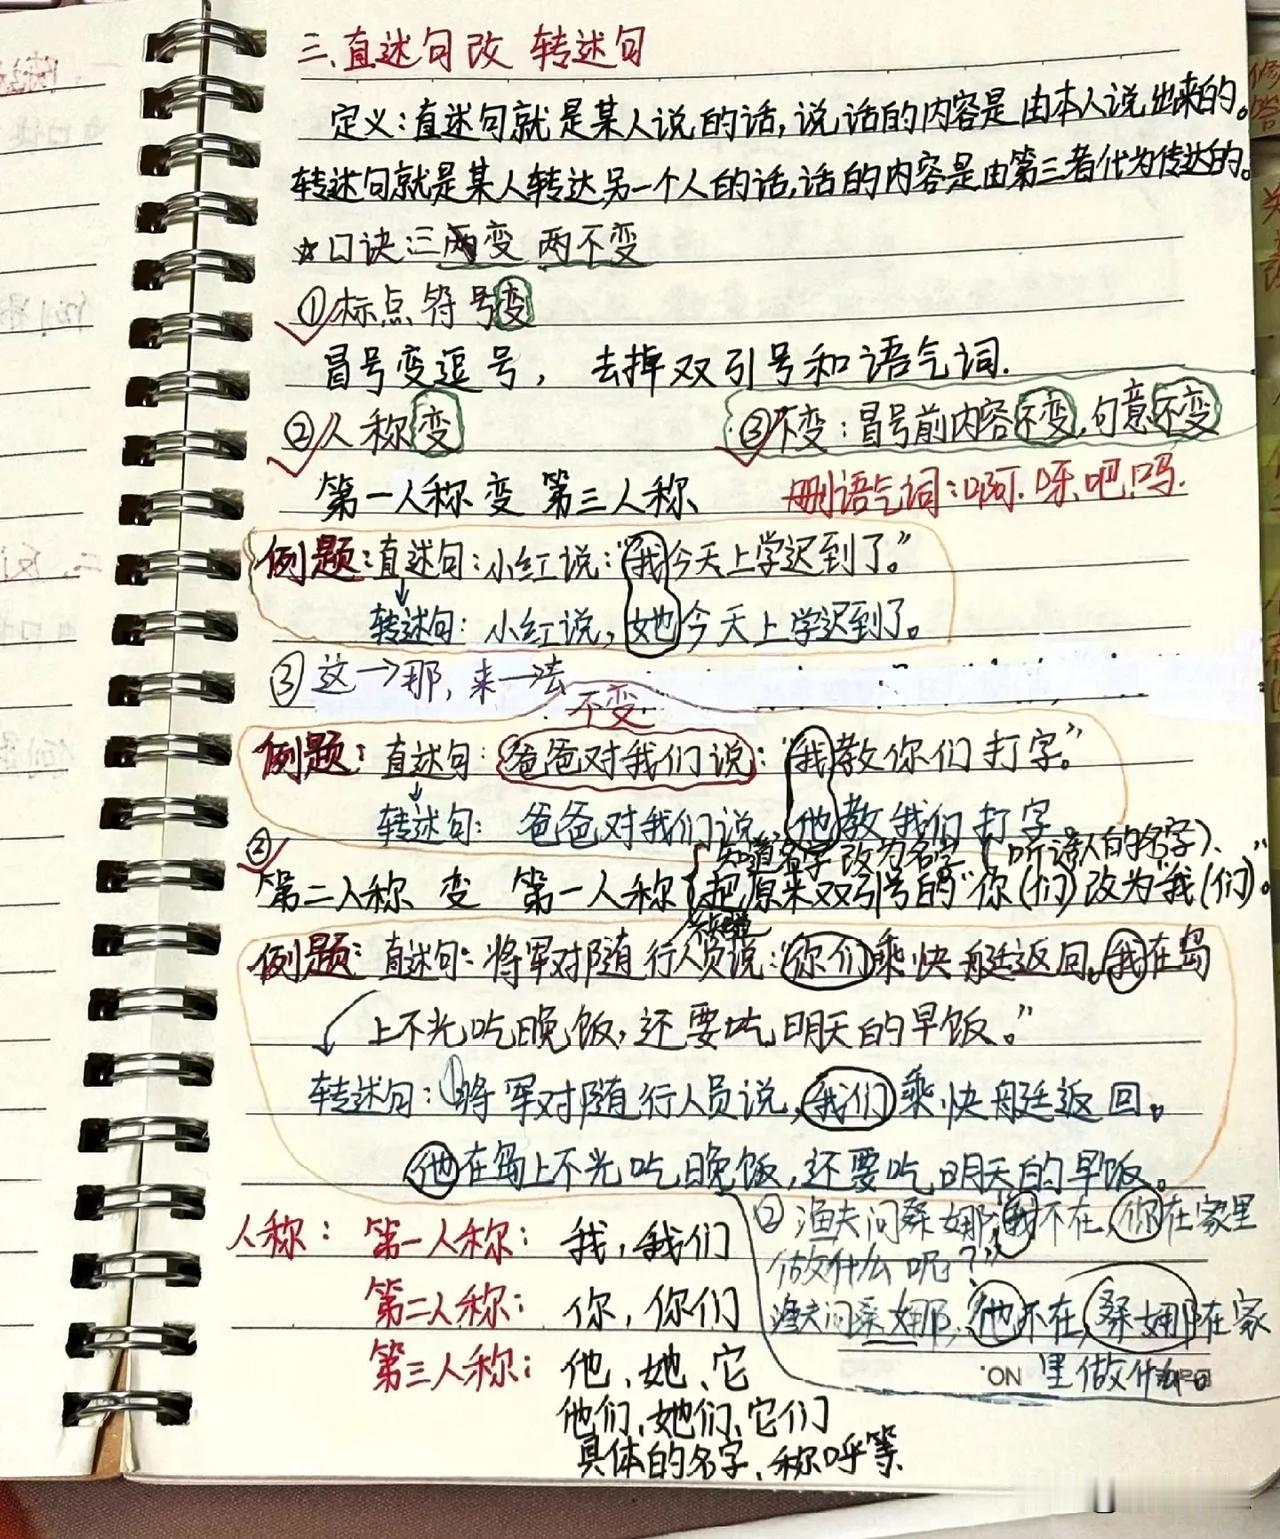 三、直述句改 转述句
定义：直述句就是某人说的话，说话的内容是由本人说出来的。
转述句就是某人转达另一个人的话，话的内容是由第三者代为传达的。
☆口诀：三两变 两不变
①标点符号变
冒号变逗号，去掉双引号和语气词.
②人称变
③不变：冒号前内容不变，句意不变
第一人称 变 第三人称
删语气词：啊、呀、吧、吗.
例题：直述句：小红说：“我今天上学迟到了。”
转述句：小红说，她今天上学迟到了。
③这→那，来→法
不变
例题：直述句：爸爸对我们说：“我教你们打字。”
转述句：爸爸对我们说，他教我们打字
②
知道名字改为名字（听话人的名字）、
第二人称 变 第一人称 把原来双引号的“你（们）改为“我（们）”。
例题：直述句：将军对随行人员说：“你们乘快艇返回。我在岛
上不光吃晚饭，还要吃明天的早饭。”
转述句：将军对随行人员说，我们乘快艇返回。
他在岛上不光吃晚饭，还要吃明天的早饭。
人称：第一人称：我，我们
第二人称：你，你们
第三人称：他、她、它
他们、她们、它们
具体的名字、称呼等
②渔夫问桑娜：“我不在，你在家里
做什么呢？”
渔夫问桑娜，他不在，桑娜在家
里做什
NO.